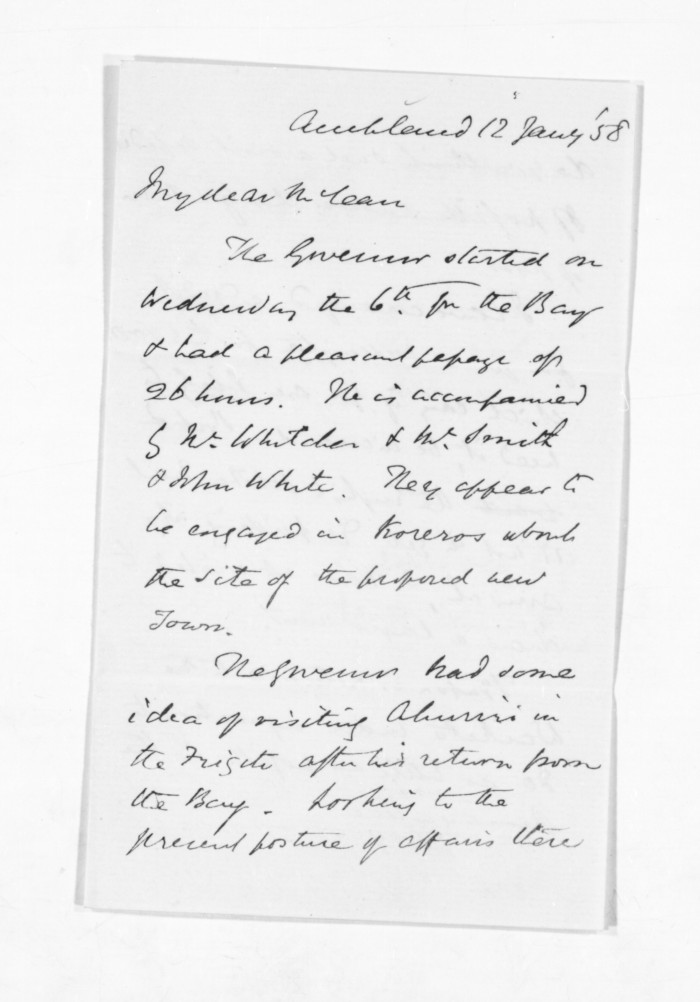 Auckland 12 Jany '58
My dear McLean
The Governor started on
Wednesday the 6th. for the Bay
& had a pleasant passage of
26 hours. He is accompanied
by Mr. Whitaker & Mr. Smith
& John White. They appear to
be engaged in Koreros about
the site of the proposed new
Town.
The Governor had some
idea of visiting Ahuriri in
the Frigate after his return from
the Bay. Looking to the
present posture of affairs there